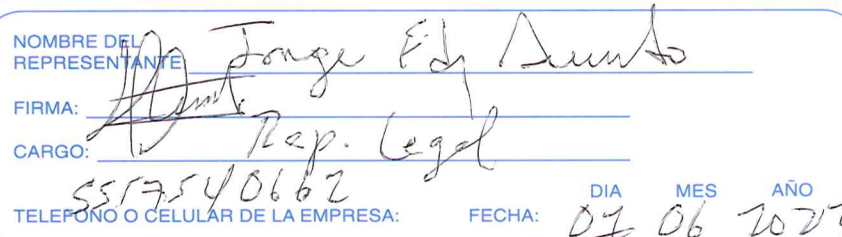 NOMBRE DEL
REPRESENTANTE Jorge
FIRMA:
CARGO: Rep. Legal
5517540662
TELEFONO O CELULAR DE LA EMPRESA: FECHA: DIA MES AÑO
01 06